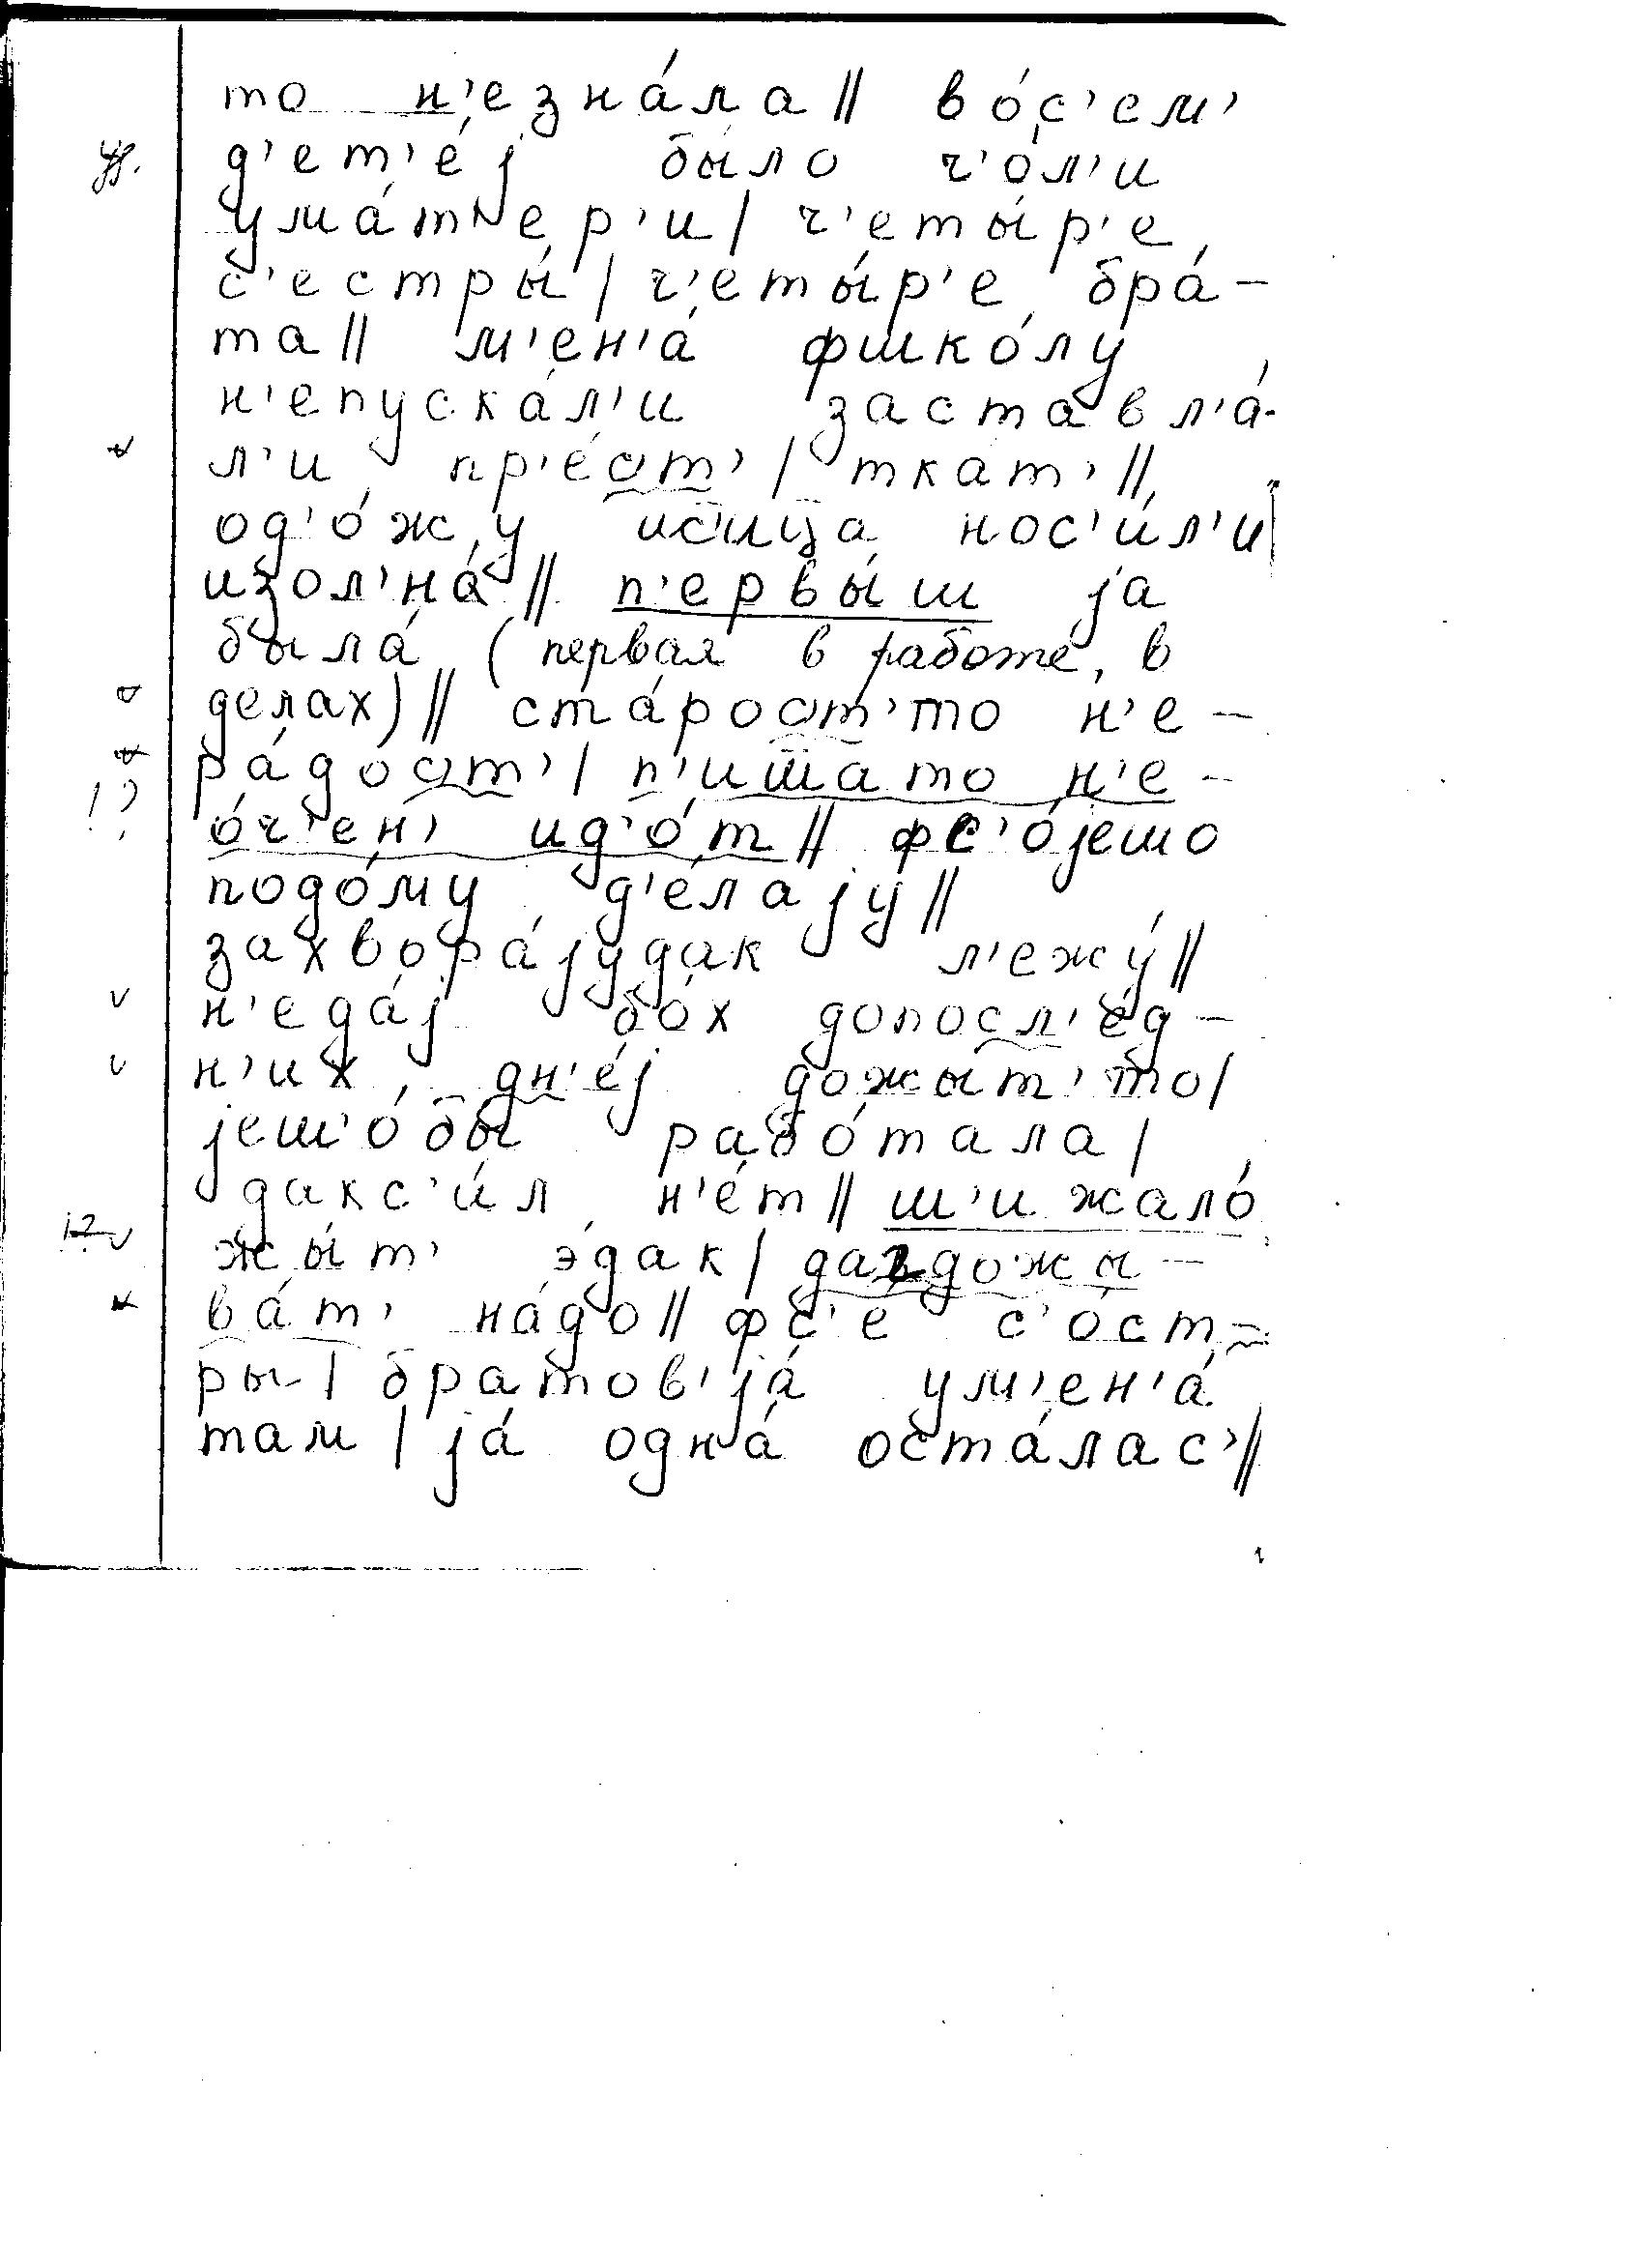 то н'езна́ла// во́с'ем'
д'ет'е́j бы́ло ч'о́л'и
ума́т'ер'и/ ч'еты́р'е
с'естры́/ ч'еты́р'е бра́-
та// м'ен'а́ фшко́лу
н'епуска́л'и заставл'а́-
л'и пр'е́ст'/ ткат'//
од'о́жу исица нос'и́л'и
изол'на́// п'ервы́ш jа
была́ (первая в работе, в
делах)// ста́рост'то н'е-
ра́дост'/ п'ишато н'е-
о́ч'ен' ид'о́т// фс'о́jешо
подо́му д'е́лаjу//
захвора́jудак л'ежу́//
н'еда́j бо́х допосл'е́д-
н'их дн'е́j дожыт'то/
jеш'о́бы рабо́тала/
дакс'и́л н'е́т// ш'и жало́
жы́т' э́дак/ да дожы-
ва́т' на́до// фс'е́ с'о́ст-
ры/ братов'jа́ ум'ен'а́
там/ jа́ одна́ оста́лас'//